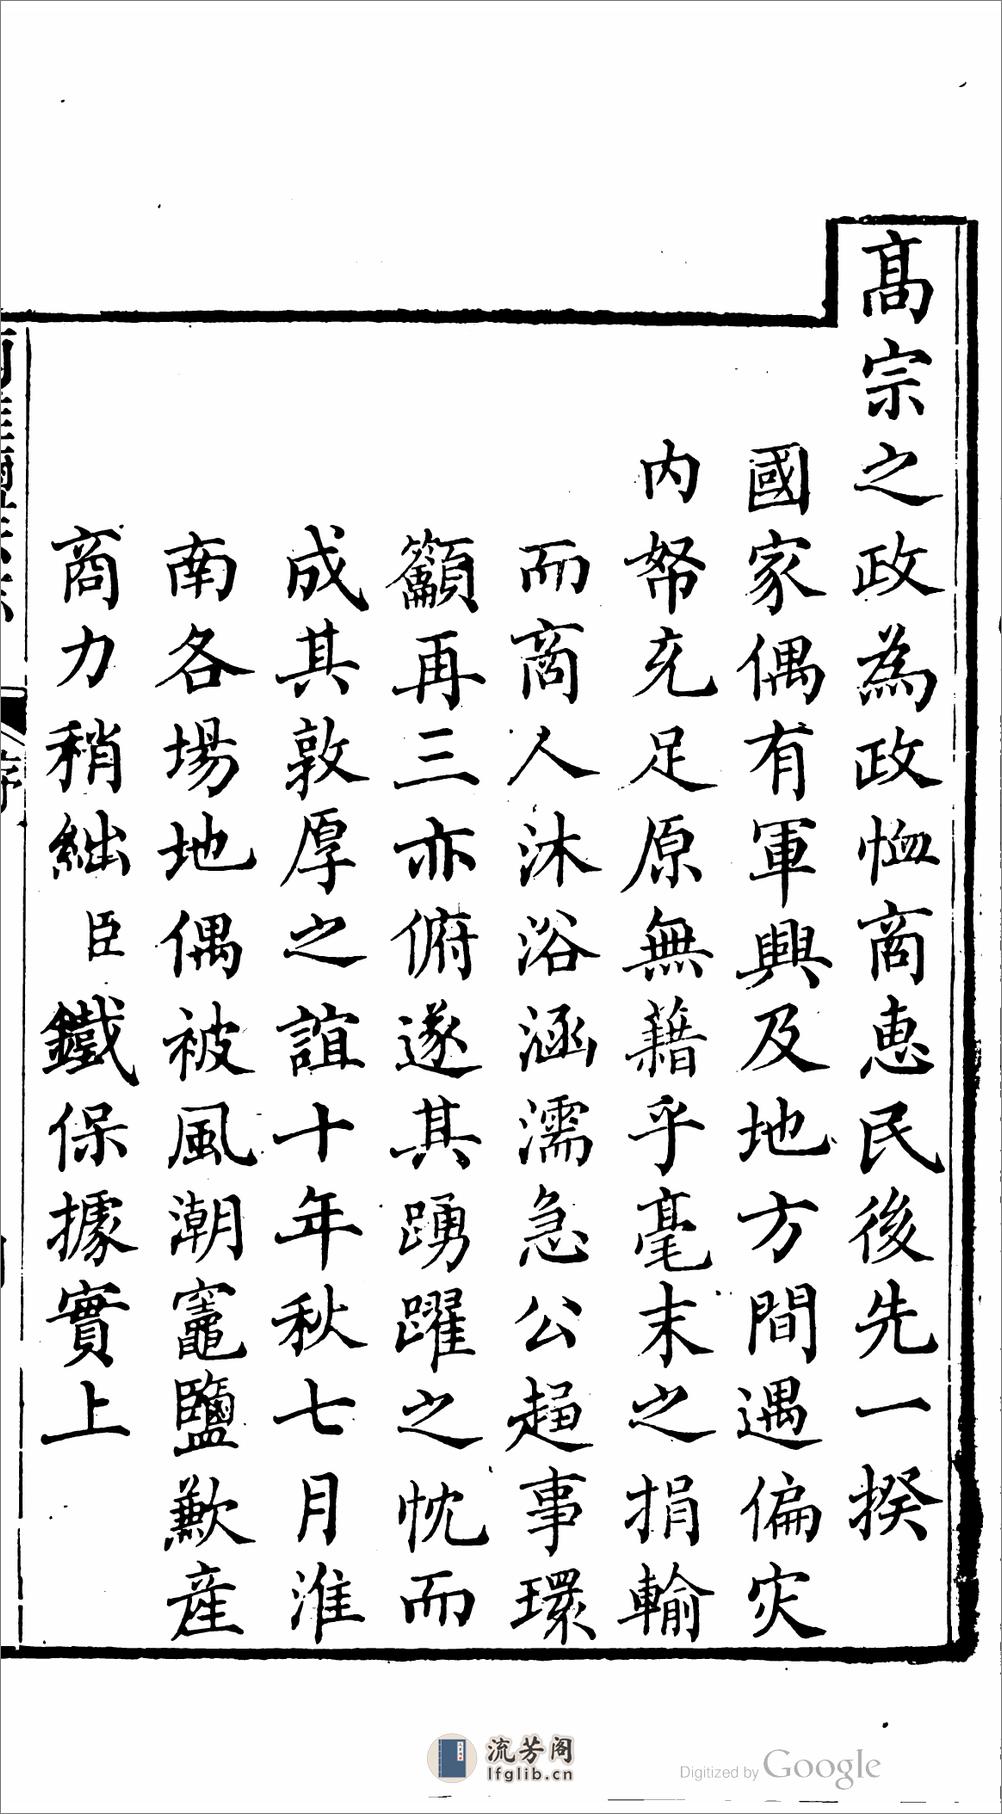 高宗之政為政恤商惠民後先一揆
國家偶有軍興及地方間遇偏灾
內帑充足原無藉乎毫末之捐輸
而商人沐浴涵濡急公趨事環
籲再三亦俯遂其踴躍之忱而
成其敦厚之誼十年秋七月淮
南各場地偶被風潮竈鹽歉産
商力稍絀臣鐵保據實上
序
流芳阁
lfglib.cn
Digitized by Google